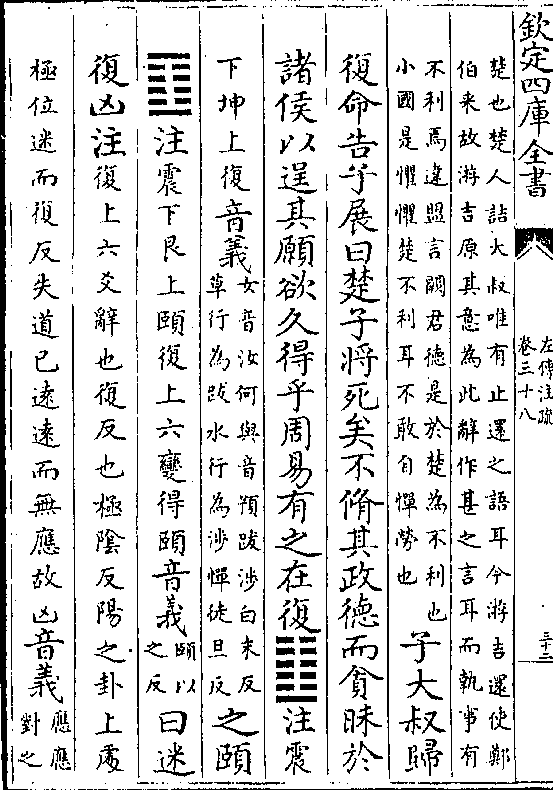 欽定四庫全書
左傳注疏
卷三十八
三十二
楚也楚人詰大叔唯有止還之語耳今游吉還使鄭
伯来故游吉原其意為此辭作甚之言耳而執事有
不利焉違盟言闕君德是於楚為不利也
小國是懼懼楚不利耳不敢自憚勞也
子大叔歸
復命告子展曰楚子將死矣不脩其政德而貪昧於
諸侯以逞其願欲久得乎周易有之在復䷗注震
下坤上復音義
女音汝何與音預跋涉白末反
草行為跋水行為涉憚徒旦反
之頤
䷚注震下艮上頤復上六變得頤音義
頤以
之反
曰迷
復凶注復上六爻辭也復反也極陰反陽之卦上處
極位迷而復反失道已遠遠而無應故凶音義
應應
對之